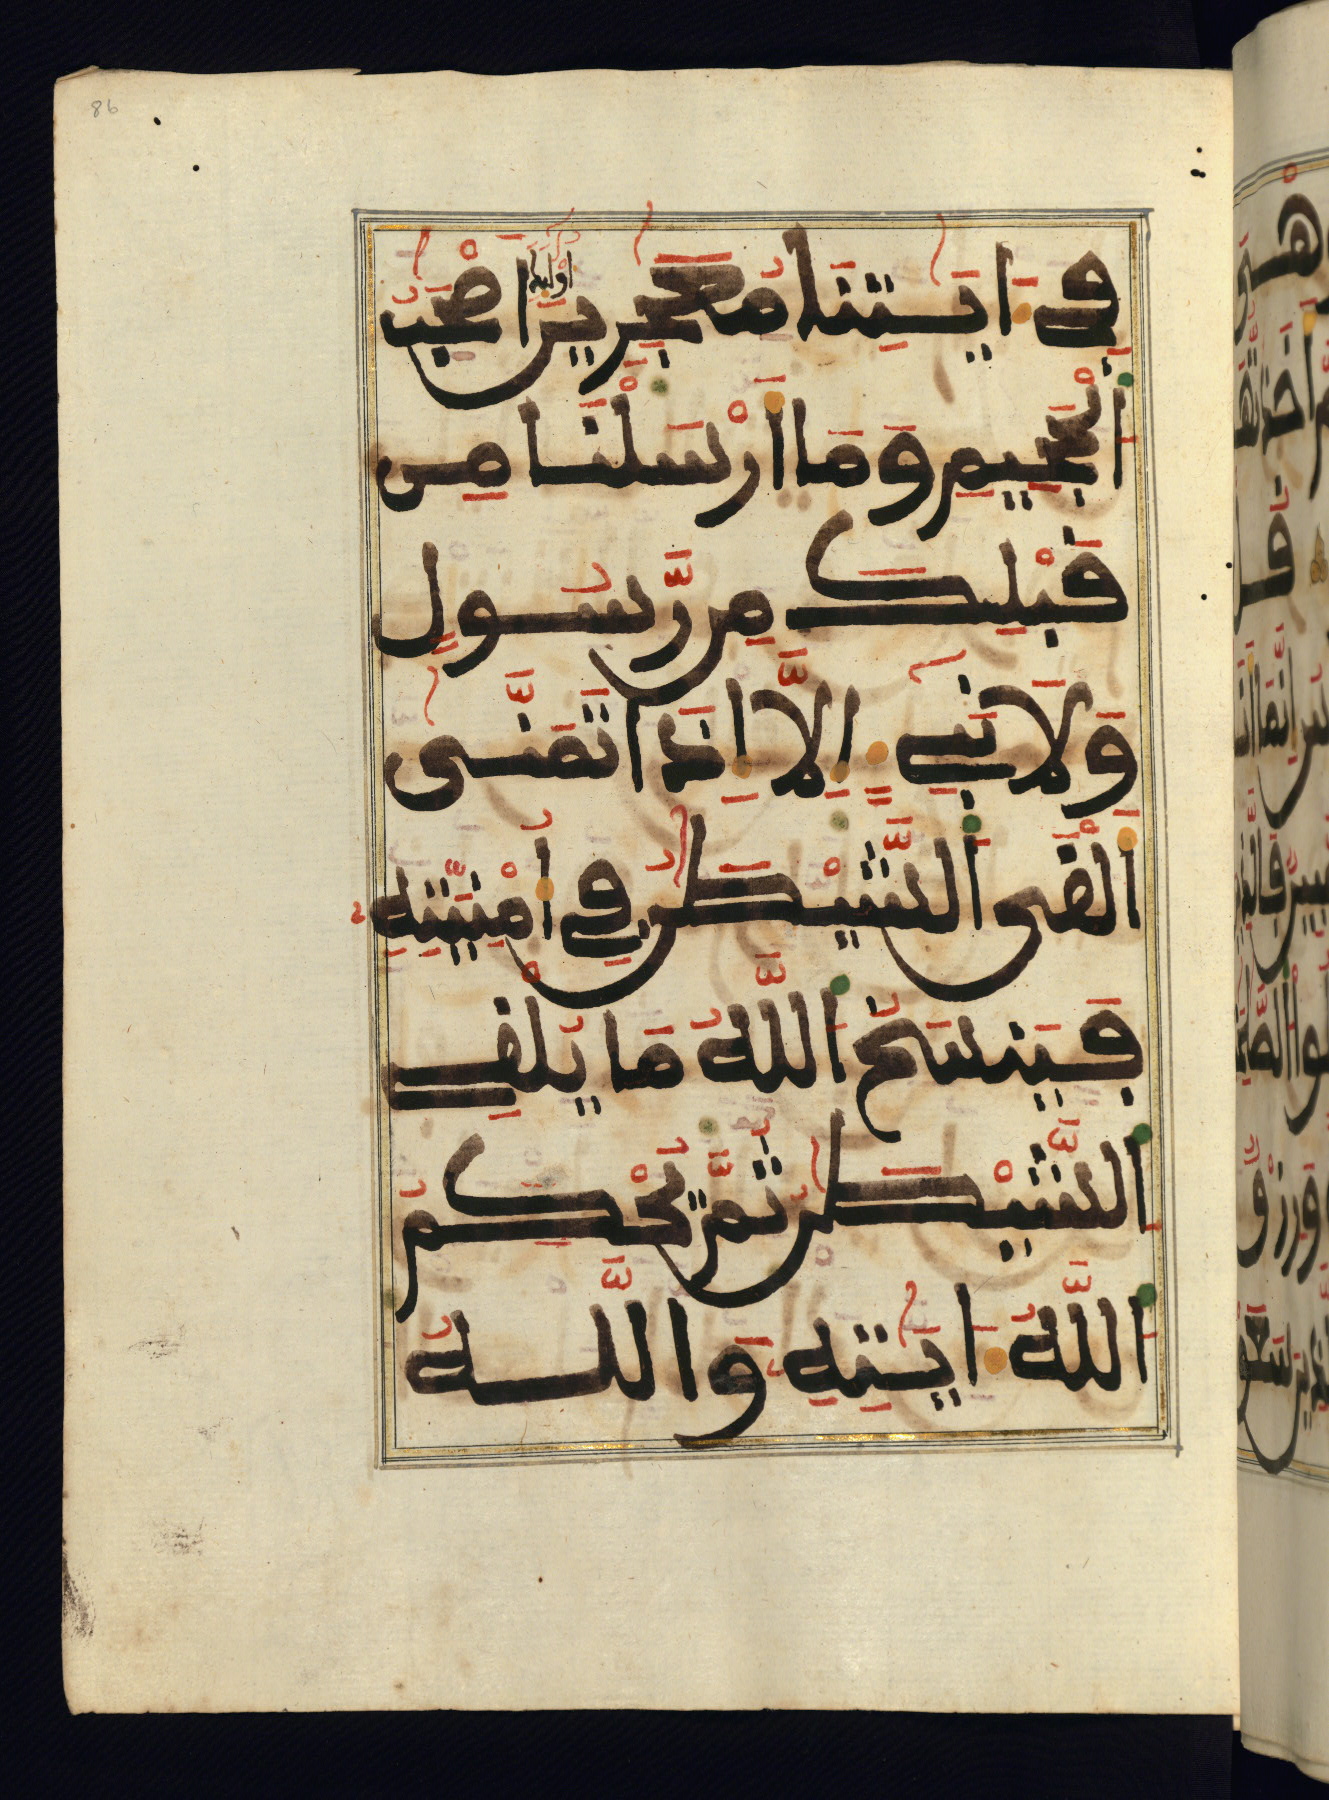 86
فِى ءَايَٰتِنَا مُعَٰجِزِينَ أُوْلَٰٓئِكَ أَصْحَٰبُ
اَ۬لْجَحِيمِ وَمَا أَرْسَلْنَا مِن
قَبْلِكَ مِن رَّسُولٍ
وَلَا نَبِيٓءٍ اِلَّا إِذَا تَمَنَّىٰ
أَلْقَى اَ۬لشَّيْطَٰنُ فِي أُمْنِيَّتِهِ
فَيَنسَخُ اُ۬للَّهُ مَا يُلْقِي
اَ۬لشَّيْطَٰنُ ثُمَّ يُحْكِمُ
اُ۬للَّهُ ءَايَٰتِهِ وَاللَّهُ